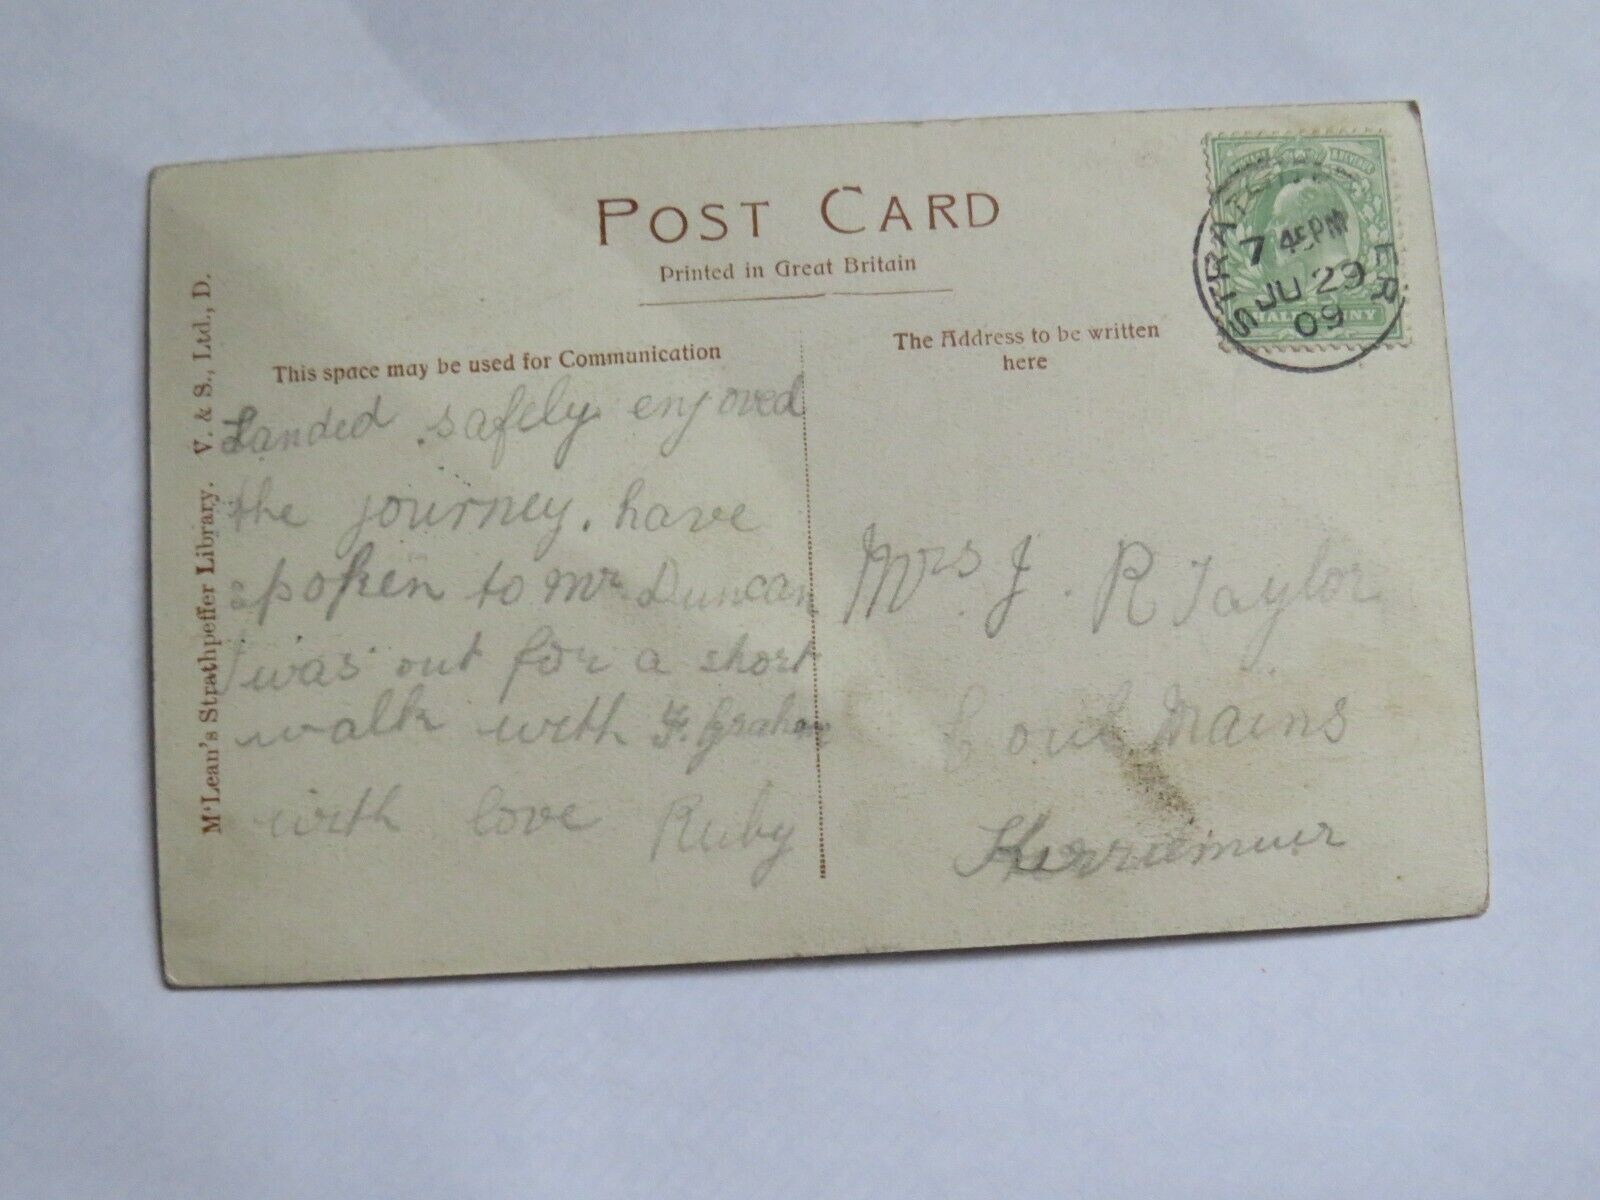 POST CARD
Printed in Great Britain
This space may be used for Communication
The Address to be written
here
M'Lean's Strathpeffer Library. V. & S., Ltd., D.
Landed safely enjoyed
the journey. have
spoken to Mr Duncan
I was out for a short
walk with F. Graham
with love Ruby
Mrs J. R Taylor
Coul Mains
Kerriemuir
7 45PM
JU 29
09